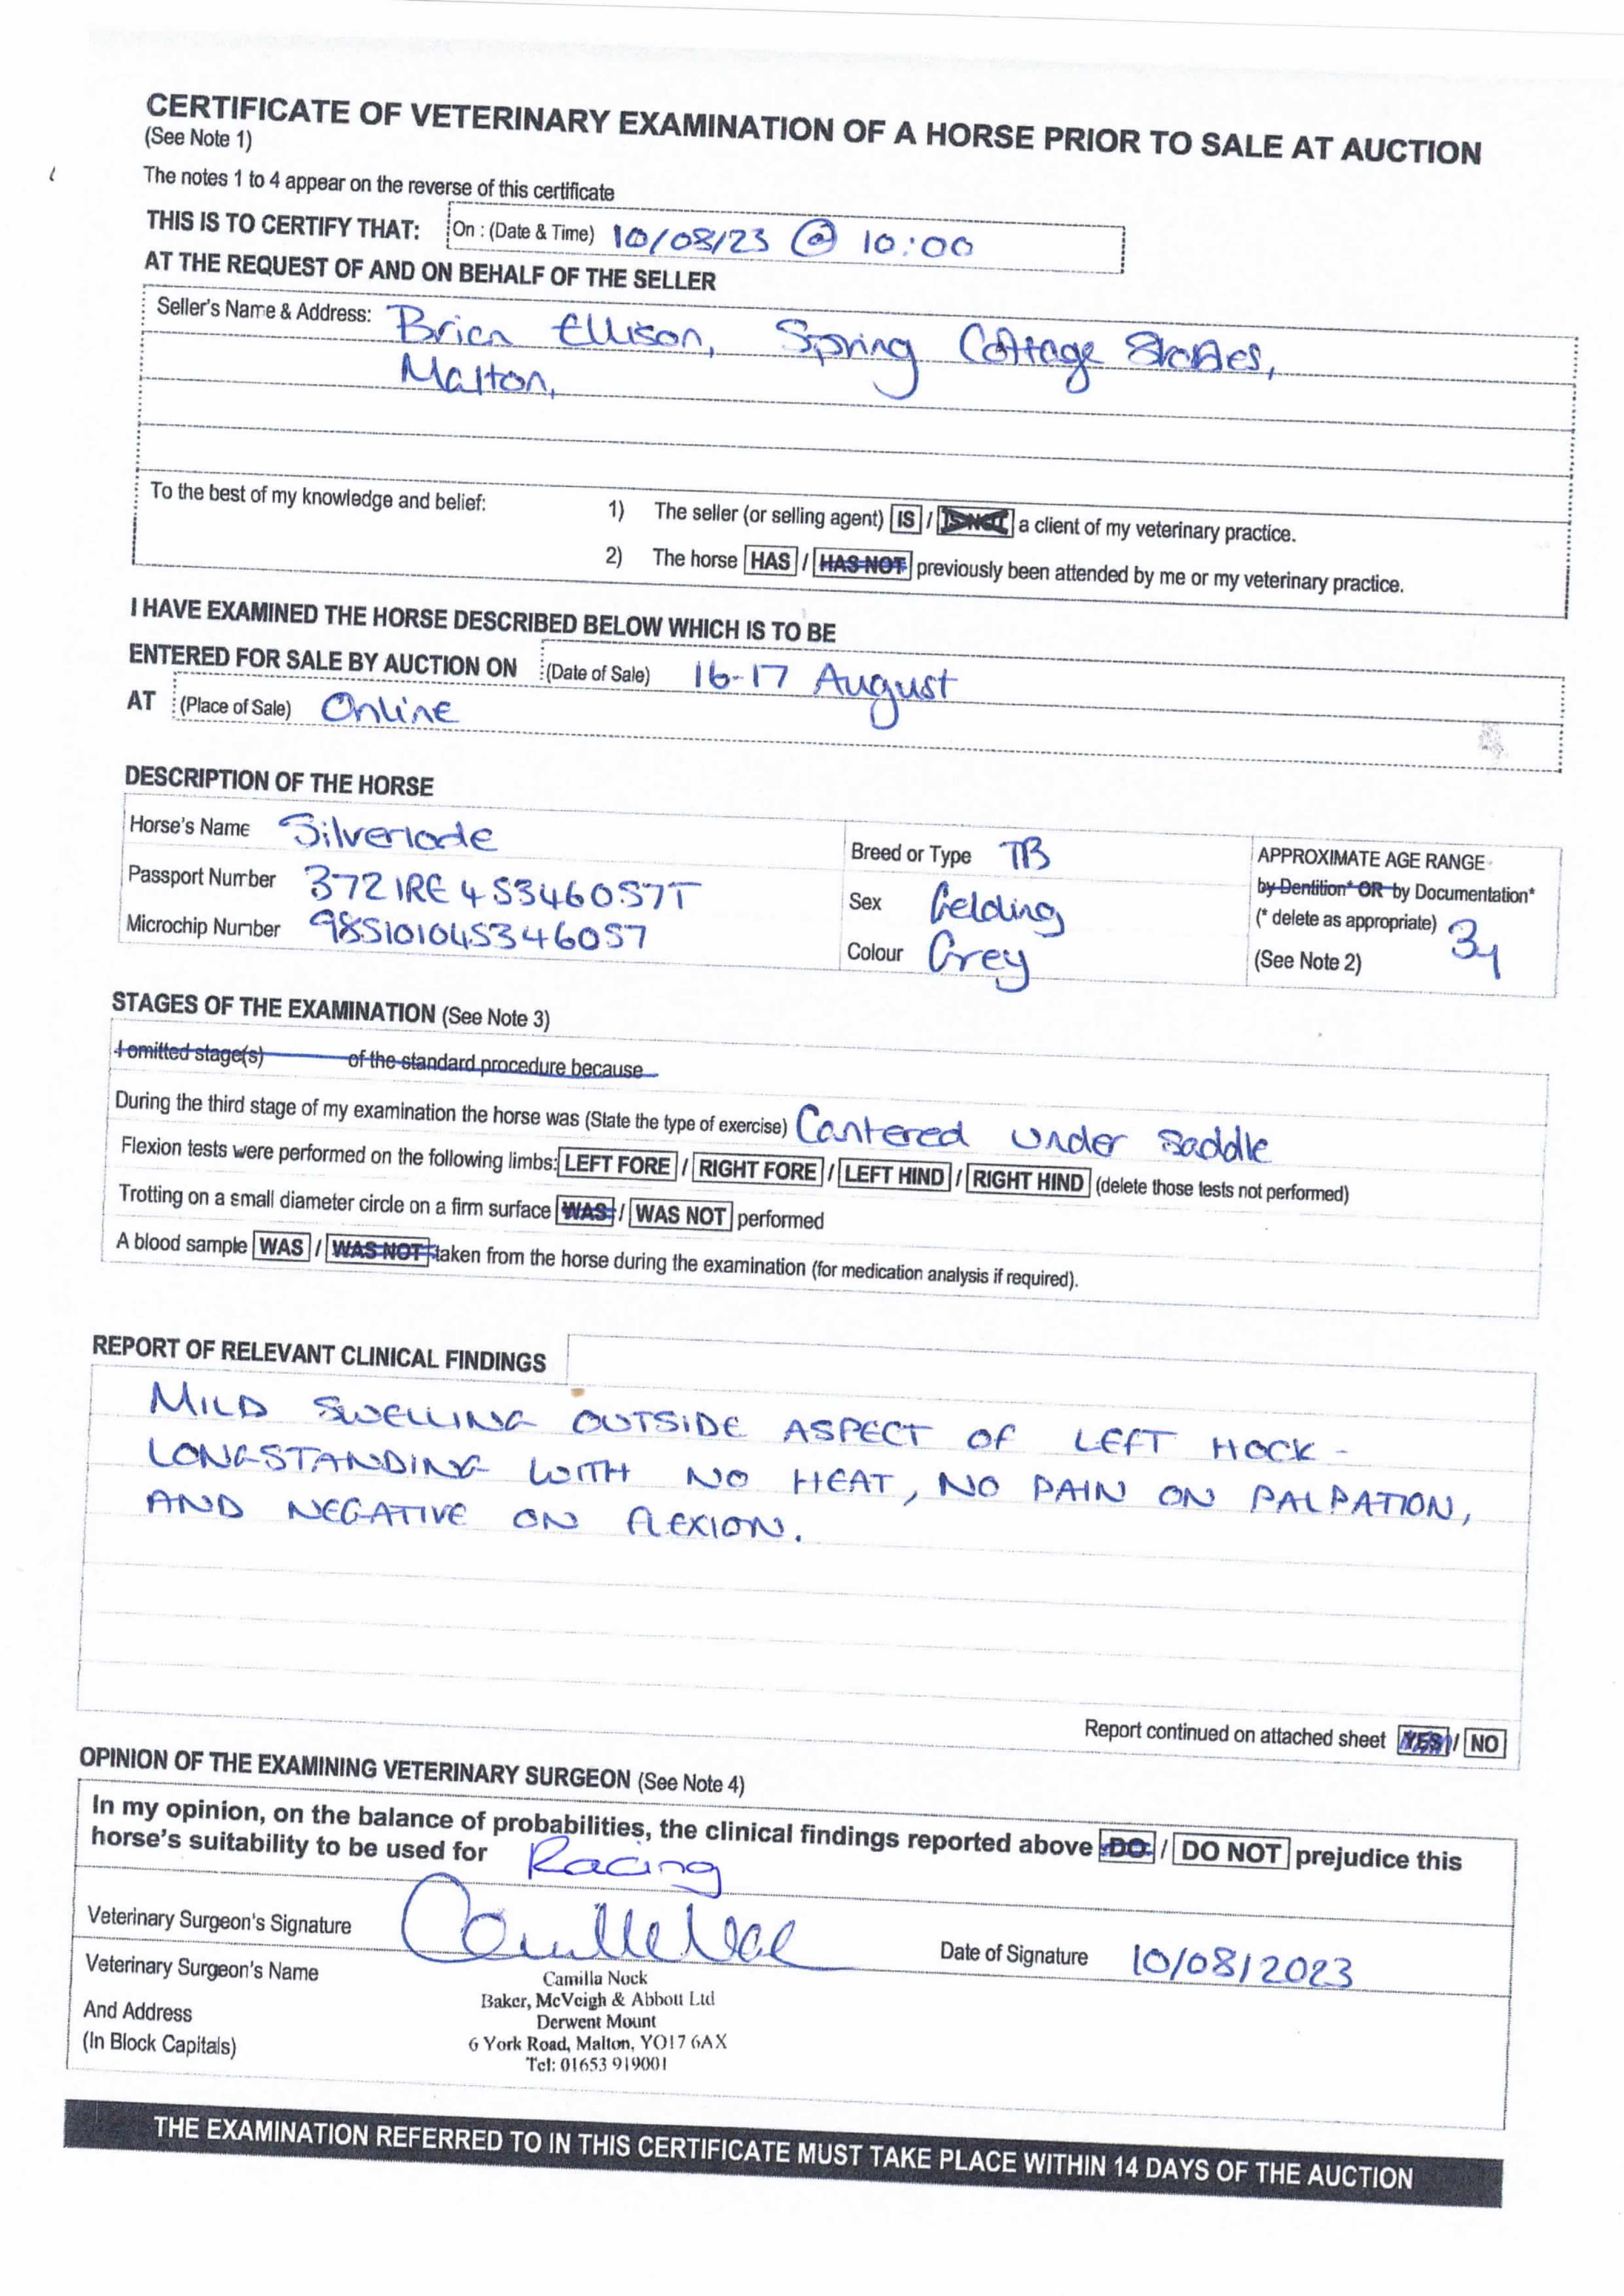 CERTIFICATE OF VETERINARY EXAMINATION OF A HORSE PRIOR TO SALE AT AUCTION
(See Note 1)
The notes 1 to 4 appear on the reverse of this certificate
THIS IS TO CERTIFY THAT: On : (Date & Time) 10/08/23 @ 10:00
AT THE REQUEST OF AND ON BEHALF OF THE SELLER
Seller's Name & Address: Brian Ellison, Spring Cottage Stables,
Malton,
To the best of my knowledge and belief: 1) The seller (or selling agent) IS / IS NOT a client of my veterinary practice.
2) The horse HAS / HAS NOT previously been attended by me or my veterinary practice.
I HAVE EXAMINED THE HORSE DESCRIBED BELOW WHICH IS TO BE
ENTERED FOR SALE BY AUCTION ON (Date of Sale) 16-17 August
AT (Place of Sale) Online
DESCRIPTION OF THE HORSE
Horse's Name Silverlode
Passport Number 372 IRE 45346057T
Microchip Number 985101045346057
Breed or Type TB
Sex Gelding
Colour Grey
APPROXIMATE AGE RANGE
by Dentition* OR by Documentation*
(* delete as appropriate) 3y
(See Note 2)
STAGES OF THE EXAMINATION (See Note 3)
I omitted stage(s) of the standard procedure because
During the third stage of my examination the horse was (State the type of exercise) Cantered under saddle
Flexion tests were performed on the following limbs: LEFT FORE / RIGHT FORE / LEFT HIND / RIGHT HIND (delete those tests not performed)
Trotting on a small diameter circle on a firm surface WAS / WAS NOT performed
A blood sample WAS / WAS NOT taken from the horse during the examination (for medication analysis if required).
REPORT OF RELEVANT CLINICAL FINDINGS
MILD SWELLING OUTSIDE ASPECT OF LEFT HOCK -
LONGSTANDING WITH NO HEAT, NO PAIN ON PALPATION,
AND NEGATIVE ON FLEXION.
Report continued on attached sheet YES / NO
OPINION OF THE EXAMINING VETERINARY SURGEON (See Note 4)
In my opinion, on the balance of probabilities, the clinical findings reported above DO / DO NOT prejudice this
horse's suitability to be used for Racing
Veterinary Surgeon's Signature
Date of Signature 10/08/2023
Veterinary Surgeon's Name
And Address
(In Block Capitals)
Camilla Nock
Baker, McVeigh & Abbott Ltd
Derwent Mount
6 York Road, Malton, YO17 6AX
Tel: 01653 919001
THE EXAMINATION REFERRED TO IN THIS CERTIFICATE MUST TAKE PLACE WITHIN 14 DAYS OF THE AUCTION